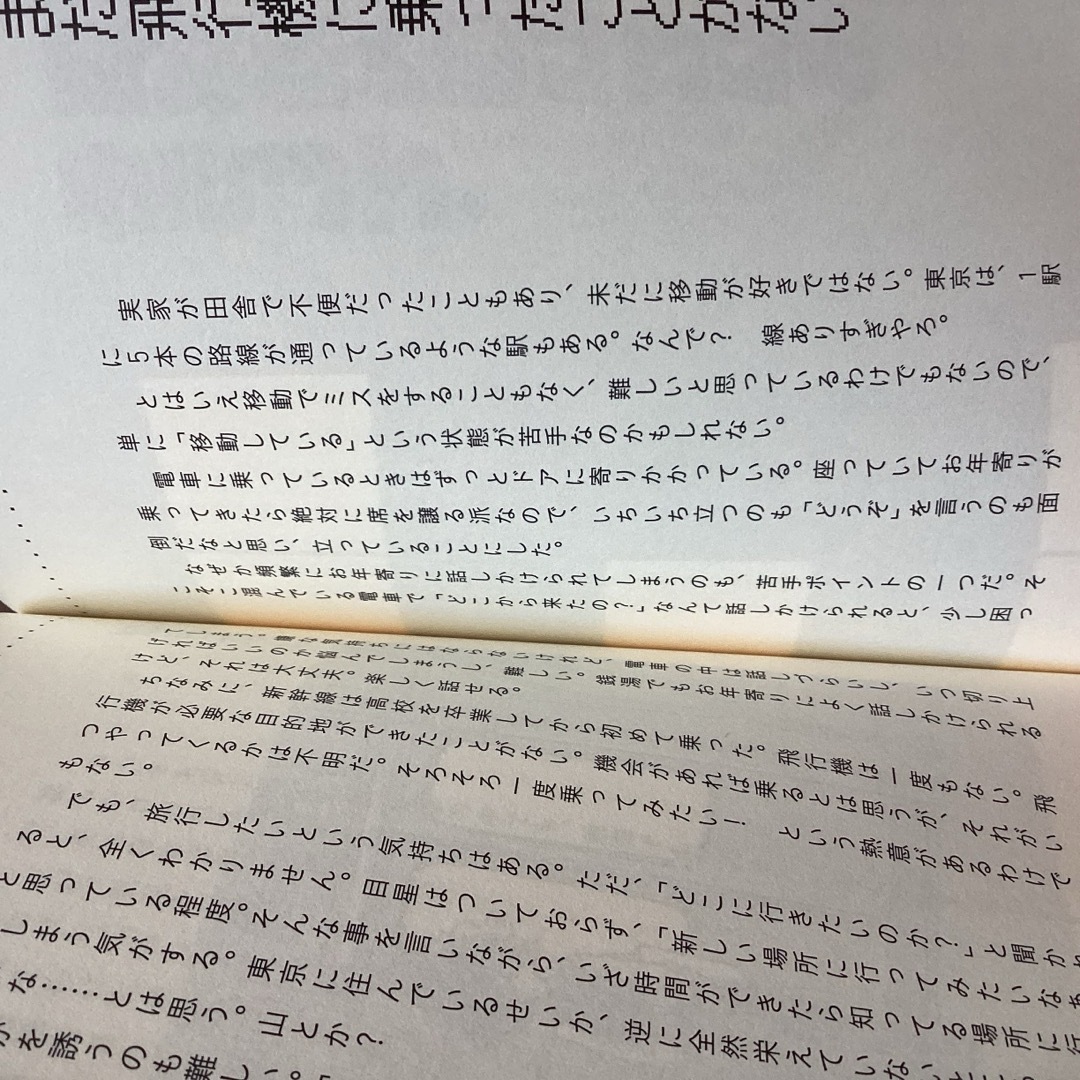 まだ飛行機に乗ったことがない
実家が田舎で不便だったこともあり、未だに移動が好きではない。東京は、1駅
に5本の路線が通っているような駅もある。なんで？　線ありすぎやろ。
とはいえ移動でミスをすることもなく、難しいと思っているわけでもないので、
単に「移動している」という状態が苦手なのかもしれない。
電車に乗っているときはずっとドアに寄りかかっている。座っていてお年寄りが
乗ってきたら絶対に席を譲る派なので、いちいち立つのも「どうぞ」を言うのも面
倒だなと思い、立っていることにした。
なぜか頻繁にお年寄りに話しかけられてしまうのも、苦手ポイントの一つだ。そ
こそこ混んでいる電車で「どこから来たの？」なんて話しかけられると、少し困っ
てしまう。嫌な気持ちにはならないけれど、電車の中は話しづらいし、いつ切り上
ければいいのか悩んでしまうし、難しい。銭湯でもお年寄りによく話しかけられる
けど、それは大丈夫。楽しく話せる。
ちなみに、新幹線は高校を卒業してから初めて乗った。飛行機は一度もない。飛
行機が必要な目的地ができたことがない。機会があれば乗るとは思うが、それがい
つやってくるかは不明だ。そろそろ一度乗ってみたい！　という熱意があるわけで
もない。
でも、旅行したいという気持ちはある。ただ、「どこに行きたいのか？」と聞か
ると、全くわかりません。目星はついておらず、「新しい場所に行ってみたいなぁ
と思っている程度。そんな事を言いながら、いざ時間ができたら知ってる場所に行
しまう気がする。東京に住んでいるせいか、逆に全然栄えていない
な……とは思う。山とか？
を誘うのも難しい。